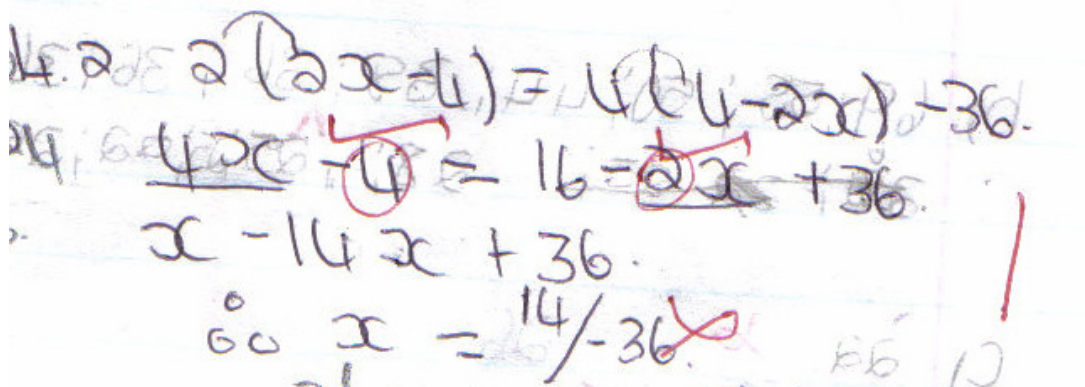 4.2 2(2x-4) = 4(4-2x) -36.
4x -4 = 16 -2x +36.
x -14x +36.
∴ x = 14/-36.